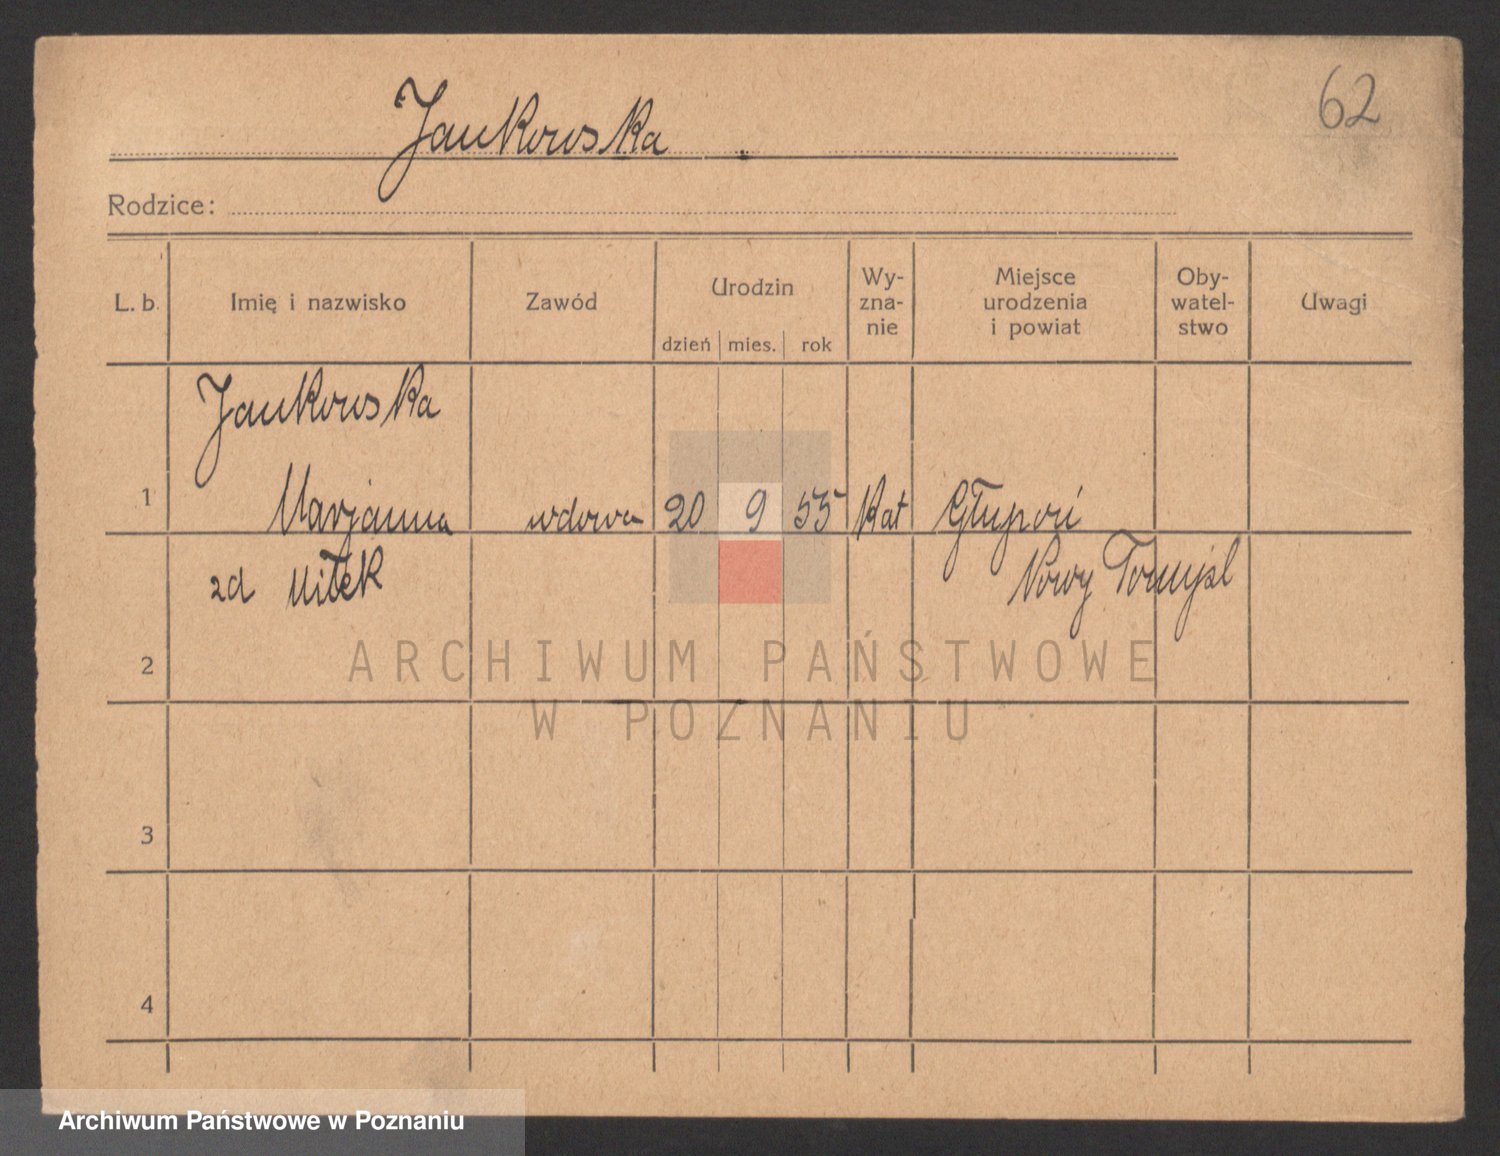 62
Jankowska
Rodzice:
L. b. Imię i nazwisko Zawód Urodzin dzień mies. rok Wy- zna- nie Miejsce urodzenia i powiat Oby- watel- stwo Uwagi
Jankowska
1 Marjanna wdowa 20 9 55 Kat Głupoń
zd Miłek Nowy Tomyśl
2
ARCHIWUM PAŃSTWOWE
W POZNANIU
3
4
Archiwum Państwowe w Poznaniu